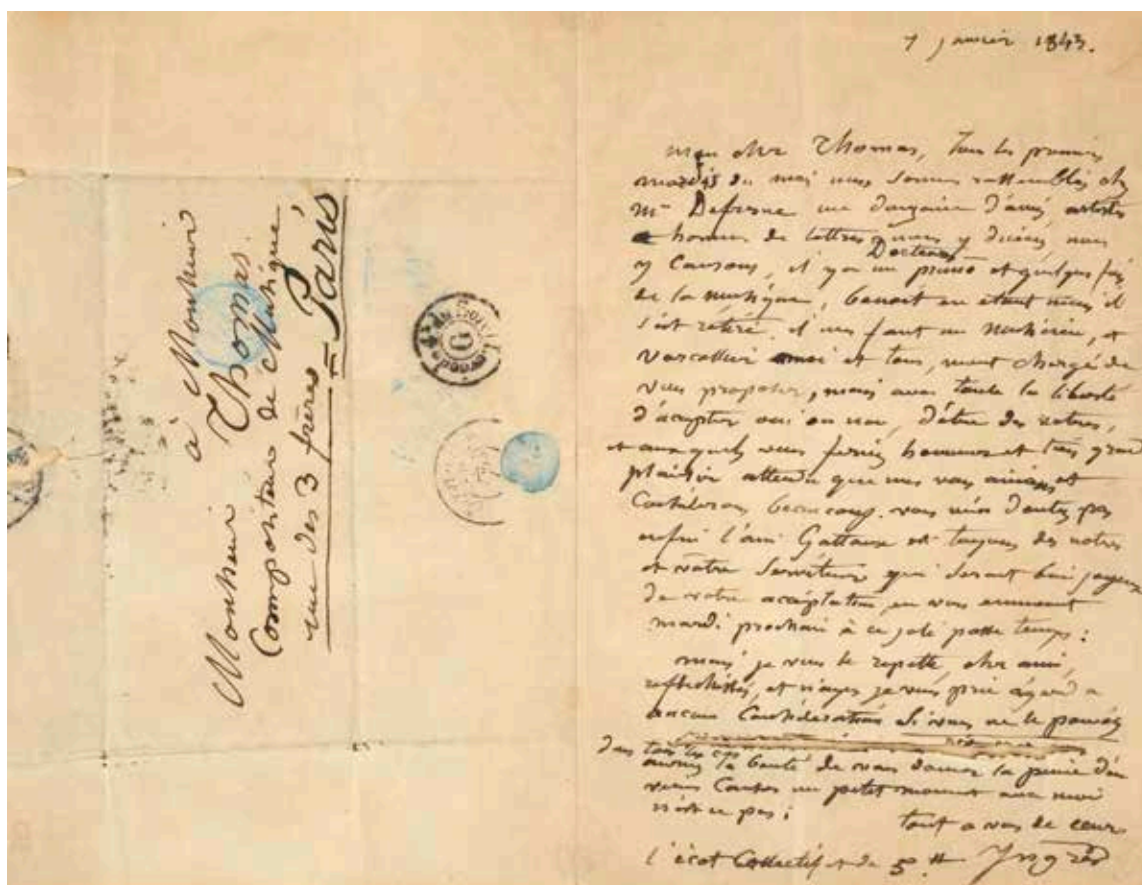 à Monsieur
Monsieur Thomas.
Compositeur de Musique
rue des 3 frères
= Paris
7 janvier 1843.
mon cher Thomas, tous les premiers
mardis du mois nous sommes rassemblés chez
Mr Defresne une douzaine d'amis artistes
hommes de lettres Docteurs nous y dinons, nous
y causons, il y a un piano et quelque fois
de la musique, benoit en etant mais il
s'est rétiré il nous faut un musicien, et
vascellier moi et tous, m'ont chargé de
vous proposer, mais avec toute la liberté
d'accepter oui ou non, d'être des notres,
et auxquels vous feriez honneur et très grand
plaisir attendu que nous vous aimons et
considerons beaucoup. vous n'en doutez pas
enfin l'ami Gatteaux est toujours des notres
et votre serviteur qui seront bien joyeux
de votre acceptation, en vous
mardi prochain à ce joli passe temps :
mais je vous le repette, cher ami,
reflechissez, et n'ayez je vous prie égard a
aucune Considération si vous ne le pouvez
dans tous les cas
la bonté de vous donner la peine d'en
venir Causer un petit moment avec moi
n'est ce pas ;
tout a vous de cœur
l'écot Collectif est de 5 Ingres